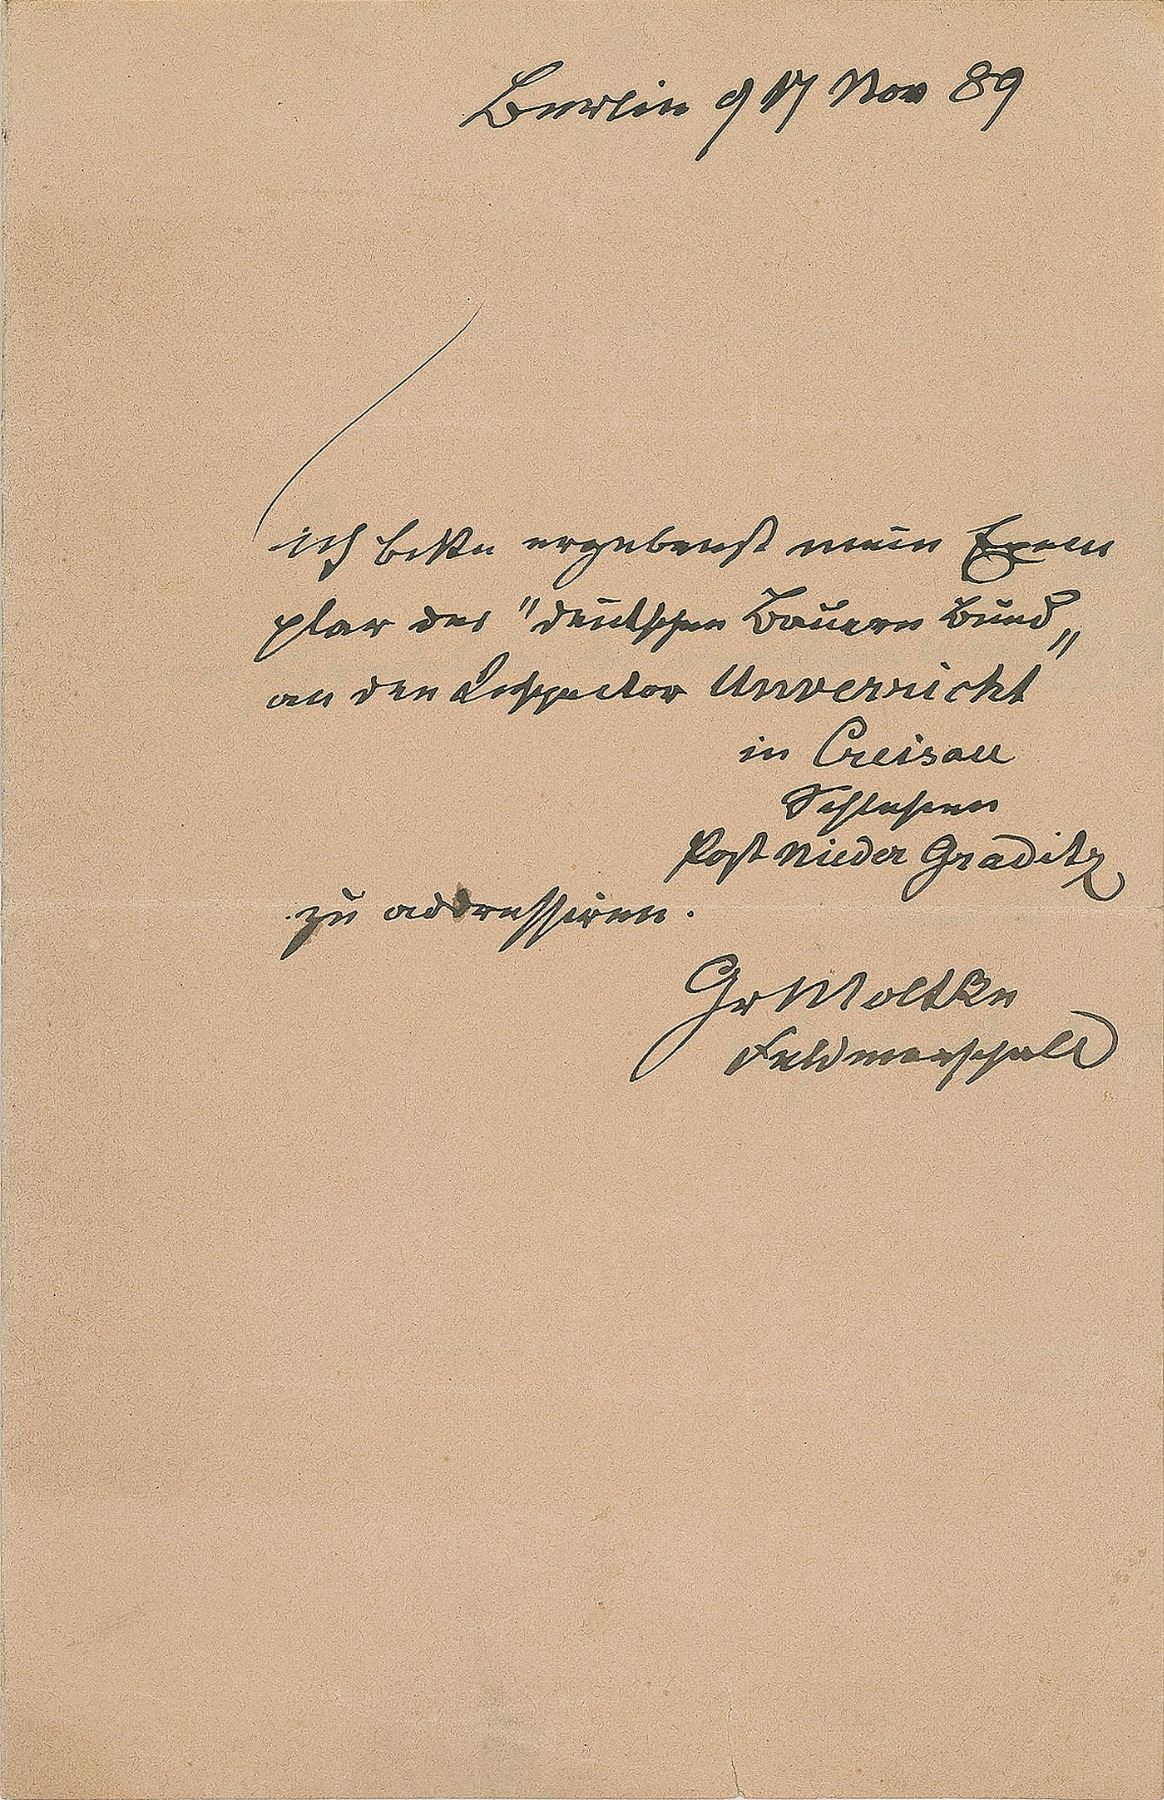 Berlin d 17 Nov 89
ich bitte ergebenst mein Exem
plar des "deutschen Bauern Bund„
an den Inspector Unverricht
in Creisau
Schlesien
Post Nieder Graditz
zu addressiren.
Gr Moltke
Feldmarschall